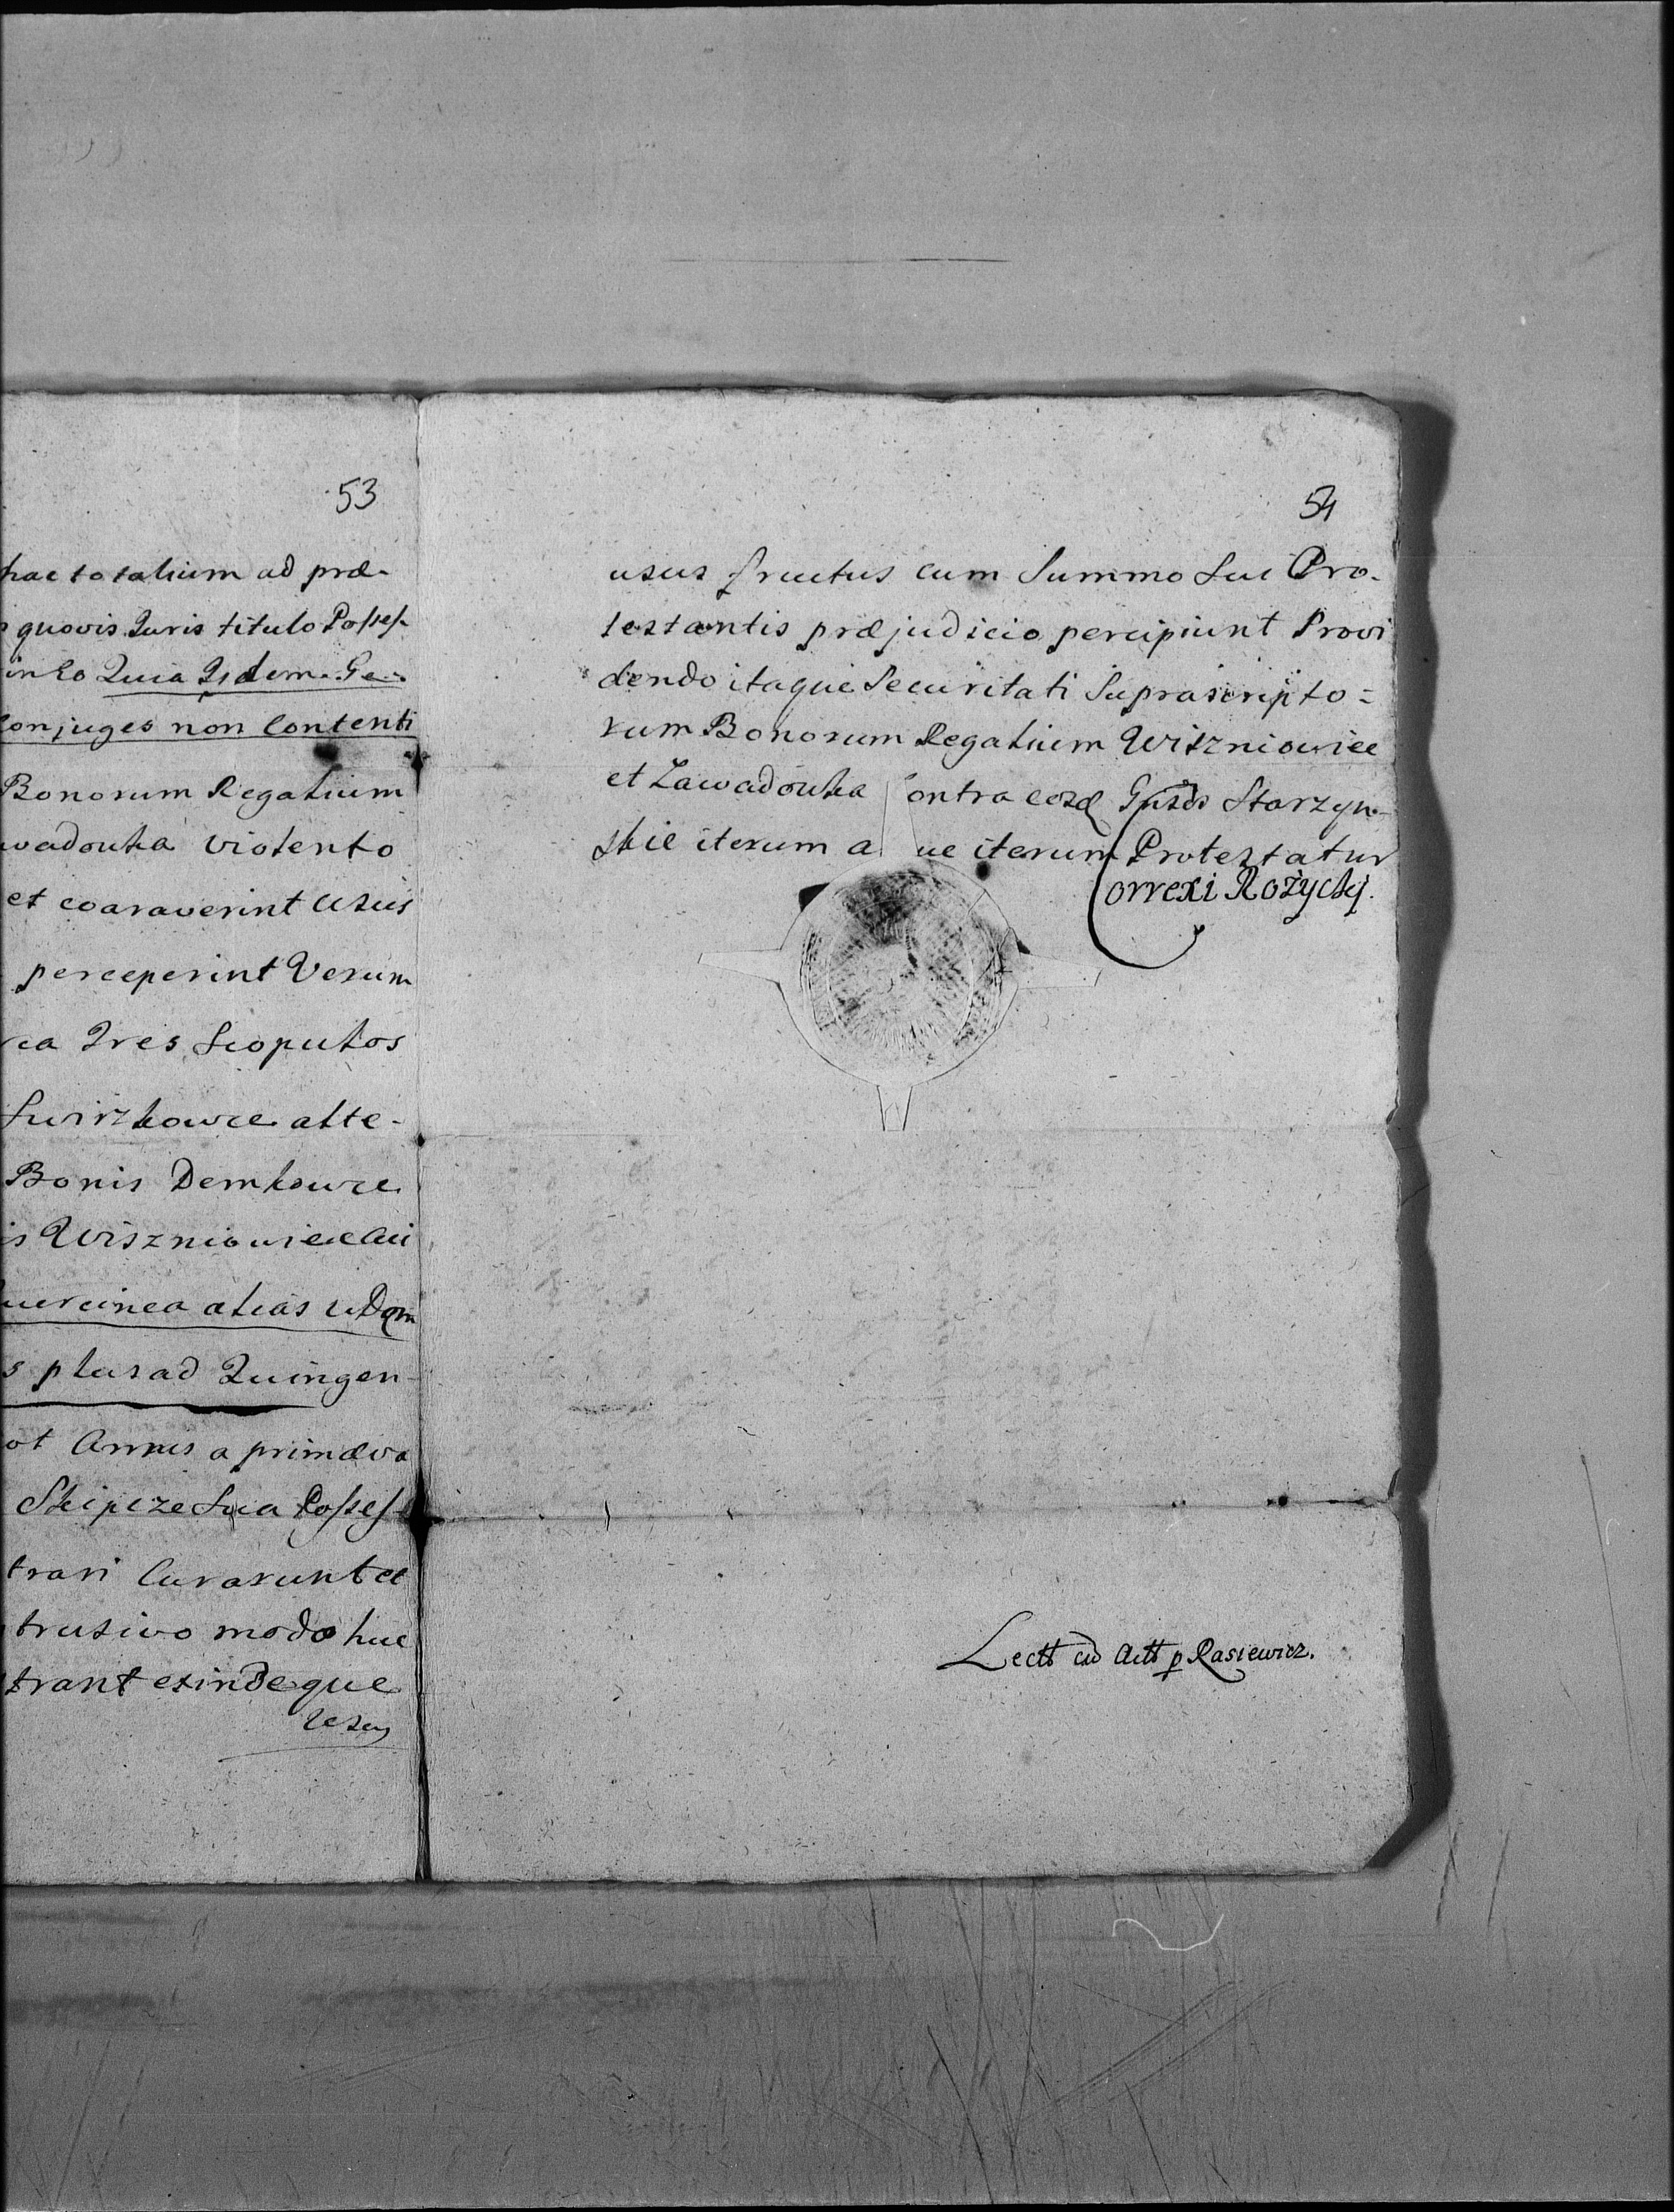 53
hac totalium ad præ-
quovis Juris titulo Posses-
in eo Quia Iidem Ge-
Conjuges non Contenti
Bonorum Regalium
wadowka violento
et coaraverint usus
perceperint Verum
Tres Scopulos
Swirzkowce alte-
Bonis Demkowce
is Wiszniowiec
uercinea alias
s plus ad Quingen-
ot Annis a primæva
Skipcze Sua Posses-
trari Curarunt et
trusivo modo huc
trant exindeque
usus
54
usus fructus cum Summo Sui Pro-
testantis præjudicio percipiunt Provi
dendo itaque Securitati Suprascripto=
rum Bonorum Regalium Wiszniowiec
et Zawadowka Contra eosd Gnsos Starzyn-
skie iterum a ue iterum Protestatur
Correxi Rożycky.
Lectt cu Actt p Rasiewicz.